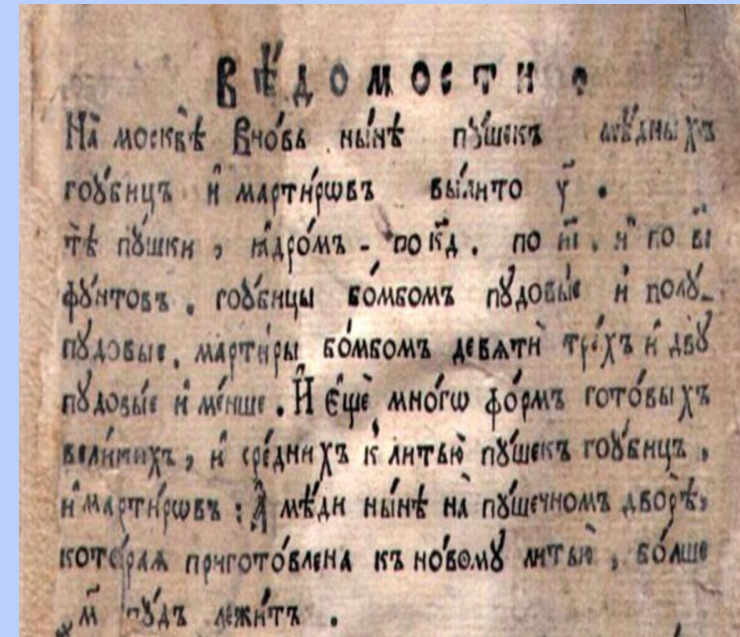 Вѣ́домости .
На̀ москвѣ̀ вно́вь ны́нѣ пꙋ́шекъ мѣ́дныхъ
гоꙋ́бицъ и҆ марти́рѡвъ вы́лито у҃ .
тѣ̀ пꙋ́шки , ꙗ҆дро́мъ - по к҃д . по и҃і . и҆ по в҃і
фу́нтовъ . гоꙋ́бицы бо́мбомъ пꙋдовы́е и҆ полꙋ-
пꙋ́довые . марти́ры бо́мбомъ девѧтѝ тре́хъ и҆ двꙋ̀
пꙋдовы́е и҆ ме́нше . И҆ є҆щѐ мно́гѡ фо́рмъ гото́выхъ
вели́кихъ , и҆ сре́днихъ к̾ литью̀ пꙋ́шекъ гоꙋ́бицъ ,
и҆ марти́рѡвъ : А҆ мѣ́ди ны́нѣ на̀ пꙋ́шечномъ дворѣ̀,
кото́раѧ пригото́влена къ но́вомꙋ литью̀ , бо́лше
м҃ пꙋ́дъ лежи́тъ .